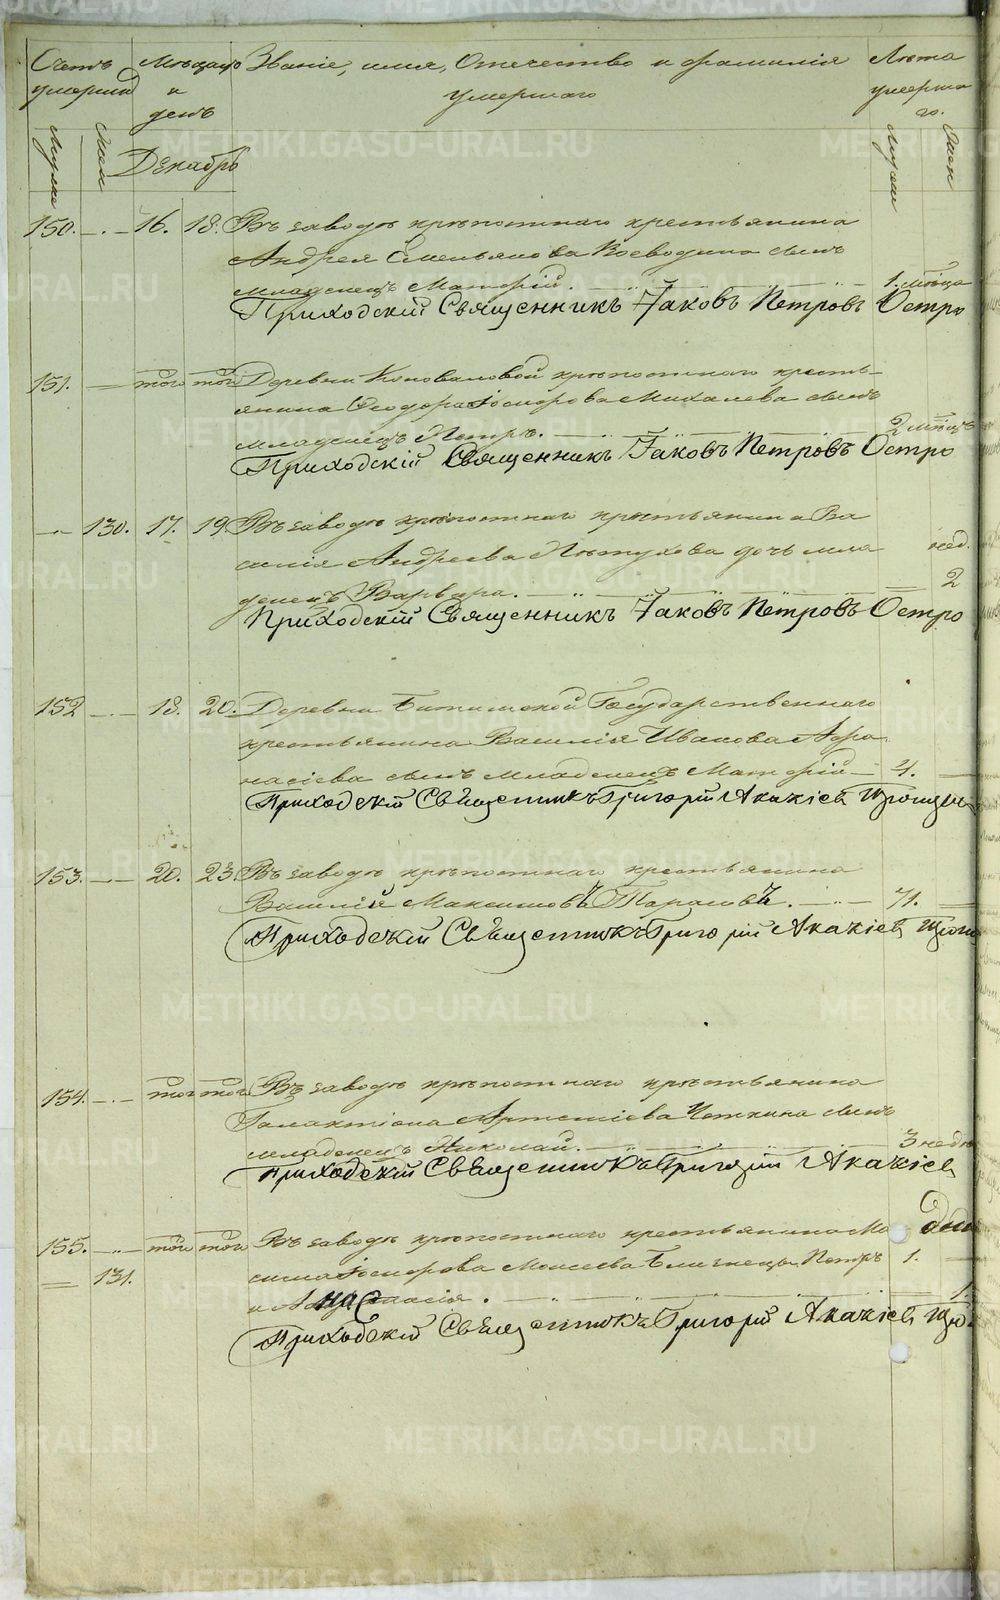 Счетъ умершихъ
Мѣсяцъ и день
Званіе, имя, Отечество и фамилія
умершаго
Лѣта умершаго.
Муж
Жен
Декабрь
Муж
Жен
150. 16. 18. Въ заводѣ крѣпостнаго крестьянина
Андрея Емельянова Воеводина сынъ
младенецъ Матфій. 1. мѣсяца
Приходскій Священникъ Іаковъ Петровъ Остро
151. того того Деревни Коноваловой крѣпостнаго кресть-
янина Ѳеодора Іосифова Михалева сынъ
младенецъ Петръ. 2 мѣсяцъ
Приходскій Священникъ Іаковъ Петровъ Остро
130. 17. 19. Въ заводѣ крѣпостнаго крестьянина Ва
силія Андреева Пѣтухова дочь мла
денецъ Варвара. нед. 2
Приходскій Священникъ Іаковъ Петровъ Остро
152 18. 20. Деревни Битимской Государственнаго
крестьянина Василія Иванова Афа
насіева сынъ младенецъ Матфій 4.
Приходскій Священникъ Григорій Акакіев
153. 20. 23. Въ заводѣ крѣпостнаго крестьянина
Василій Максимовъ Тарасовъ. 71.
Приходскій Священникъ Григорій Акакіев
154. того того Въ заводѣ крѣпостнаго крестьянина
Галактіона Артеміева сынъ
младенецъ Николай. 3 недѣ
Приходскій Священникъ Григорій Акакіев
155. того того Въ заводѣ крѣпостнаго крестьянина Ма дни
131. сима Іосифова Моисеева Близнецы Петръ 1.
и Анастасія. 1.
Приходскій Священникъ Григорій Акакіев
METRIKI.GASO-URAL.RU